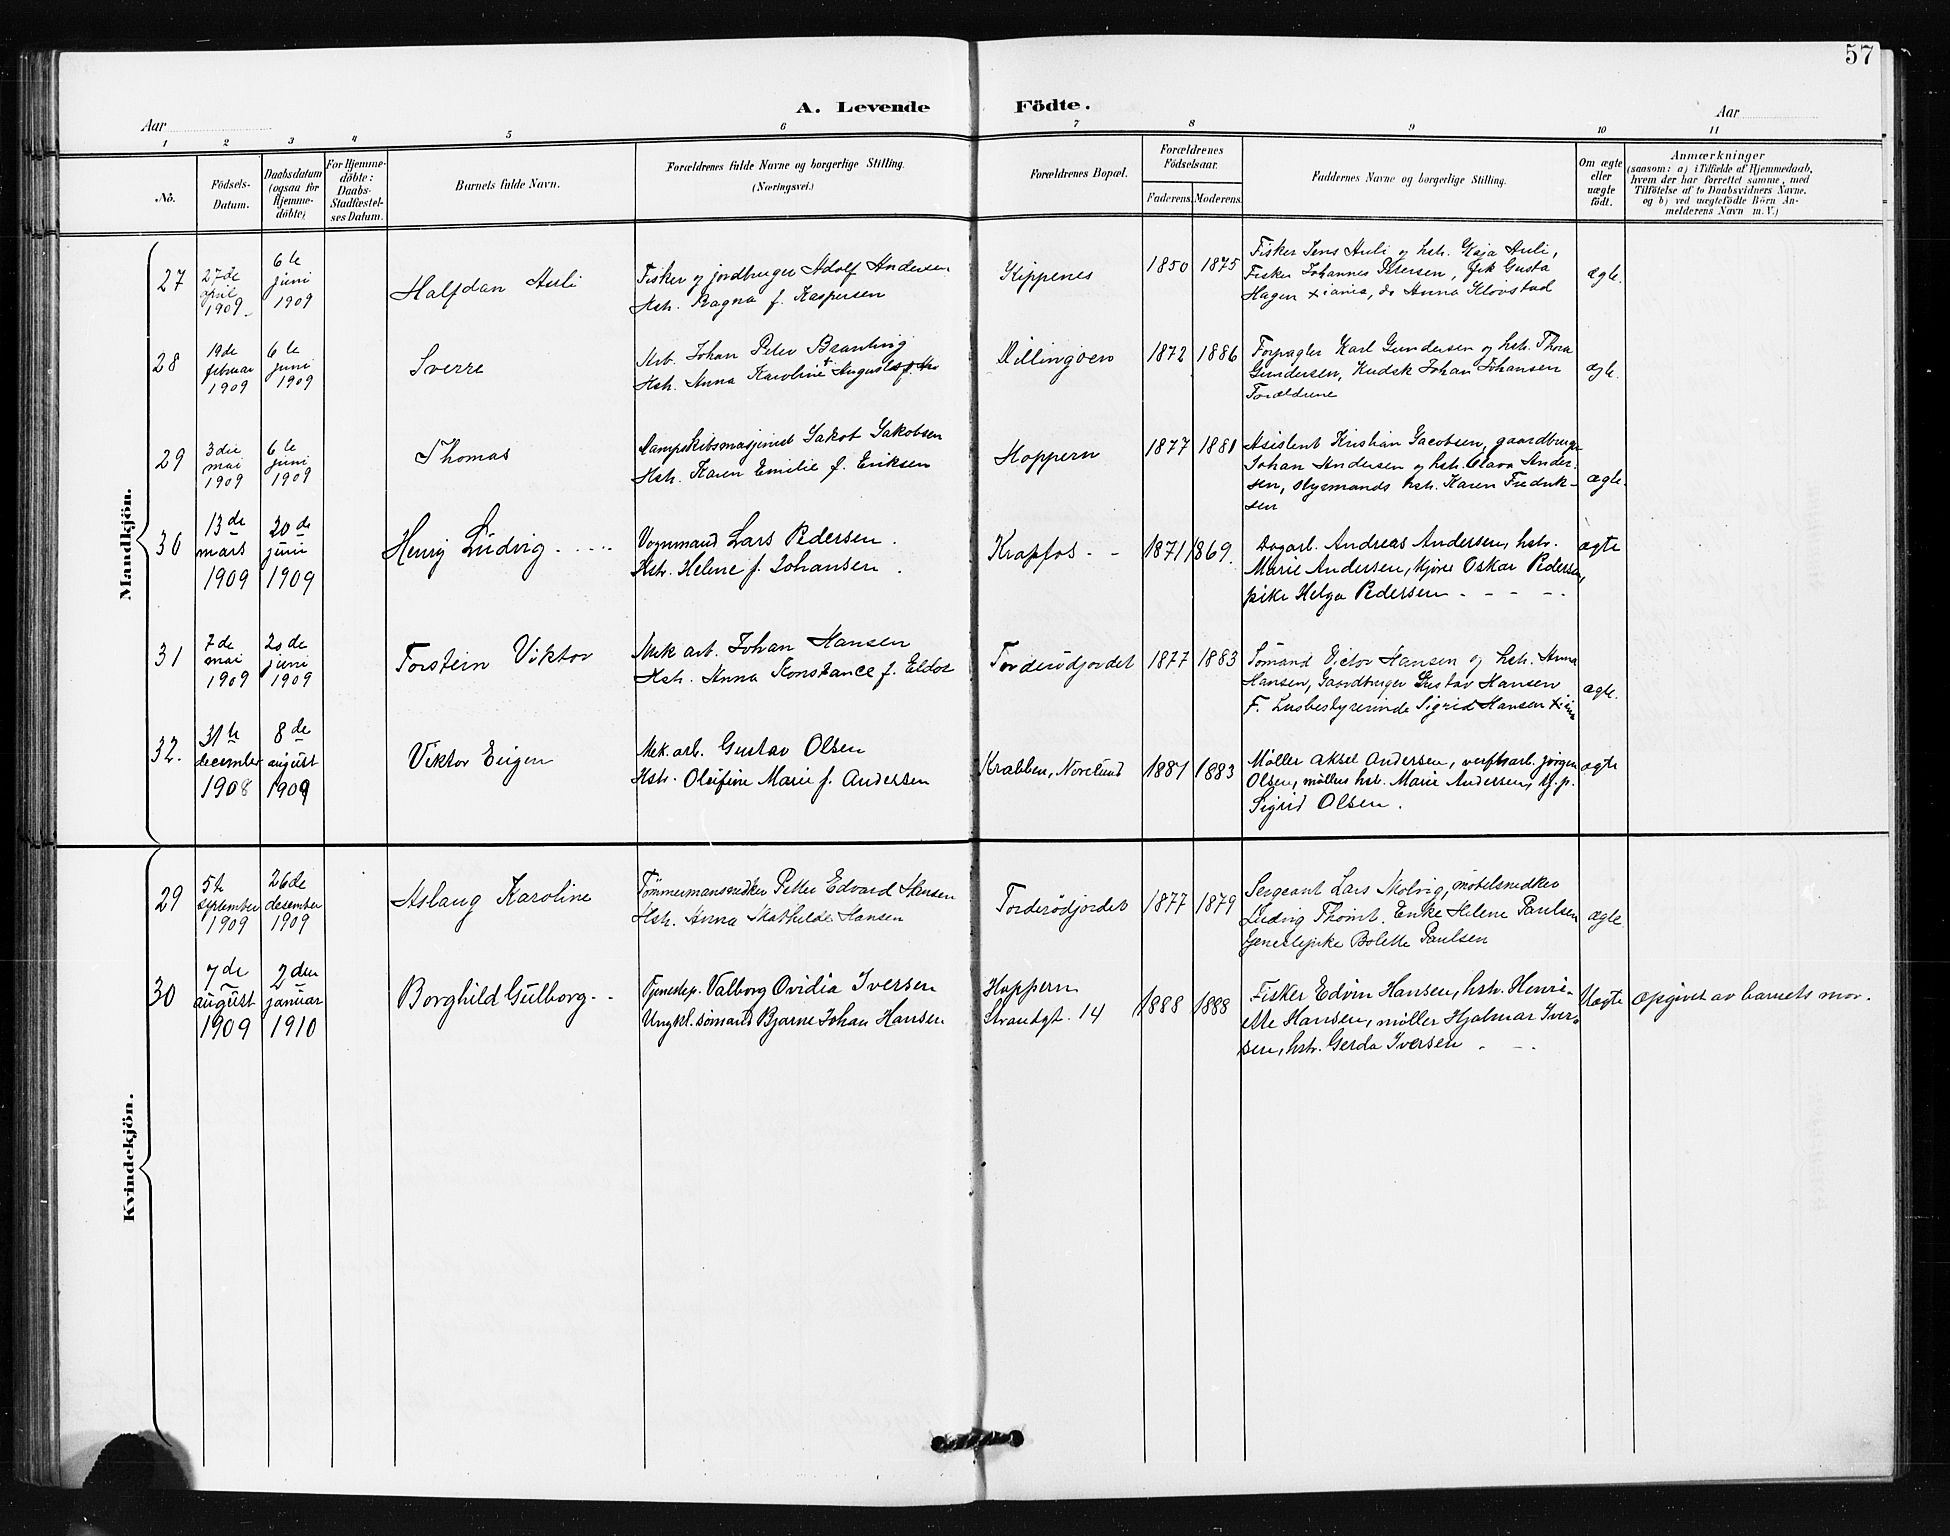 57
A. Levende Födte.
Aar
Aar
1 2 3 4 5 6 7 8 9 10 11
No.
Födsels-
Datum.
Daabsdatum
(ogsaa for
Hjemme-
döbte)
For Hjemme-
döbte:
Daabs-
Stadfæstel-
ses Datum.
Barnets fulde Navn.
Forældrenes fulde Navne og borgerlige Stilling.
(Næringsvei.)
Forældrenes Bopæl.
Forældrenes
Födselsaar.
Faderens. Moderens.
Faddernes Navne og borgerlige Stilling.
Om ægte
eller
uægte
födt.
Anmærkninger
(saasom: a) i Tilfælde af Hjemmedaab,
hvem der har forrettet samme, med
Tilföielse af to Daabsvidners Navne,
og b) ved uægtefödte Börn An-
melderens Navn m. V.)
Mandkjön.
27
27de
april
1909
6te
juni
1909
Halfdan Auli
Fisker og jordbruger Adolf Andersen
Hstr. Ragna f. Kaspersen
Kippenes
1850 1875
Fisker Jens Auli og hstr. Kaja Auli,
Fisker Johannes Petersen, frk Gusta
Hagen Xiania, do Anna Klovstad
ægte.
28
19de
februar
1909
6te
juni
1909
Sverre
Arb. Johan Peter Branting
Hstr. Anna Karoline Augusta
1872 1886
Forpagter Karl Gundersen og hstr. Thora
Gundersen, Kudsk Johan Johansen
Forældrene
ægte.
29
3die
mai
1909
6te
juni
1909
Thomas
Dampskibsmasjinist Jakob Jakobsen
Hstr. Karen Emilie f. Eriksen
Hoppern
1877 1881
Assistent Kristian Jacobsen, gaardbruger
Johan Andersen og hstr. Clara Ander-
sen, styrmands hstr. Karen Fredrik-
sen
ægte.
30
13de
mars
1909
20de
juni
1909
Henry Ludvig
Vognmand Lars Pedersen.
Hstr. Helene f. Johansen.
Krapfos
1871 1869.
Dagarb. Andreas Andersen, hstr.
Marie Andersen, kjöre Oskar Pedersen,
pike Helga Pedersen
ægte
31
7de
mai
1909
20de
juni
1909
Torstein Viktor
Mek arb. Johan Hansen
Hstr. Anna Konstance f. Eldor
Torderödjordet
1877 1883
Sömand Victor Hansen og hstr. Anna
Hansen, Gaardbruger Gustav Hansen
F. Husbestyrerinde Sigrid Hansen
ægte.
32.
31te
december
1908
8de
august
1909
Viktor Eugen
Mek. arb. Gustav Olsen
Hstr. Olefine Marie f. Andersen
Krabben, Norelund
1881 1883
Møller Aksel Andersen, verftsarb. Jörgen
Olsen, møllers hstr. Marie Andersen, tj. p.
Sigrid Olsen.
ægte
Kvindekjön.
29
5te
september
1909
26de
desember
1909
Aslaug Karoline
Tömmermansnedker Petter Edvard Hansen
Hstr. Anna Mathilde Hansen
Torderödjordet
1877 1879
Sergeant Lars Molvig, møbelsnedker
Ludvig Thomt. Enke Helene Paulsen
tjenestepike Bolette Paulsen
ægte
30
7de
august
1909
2den
januar
1910
Borghild Gulborg
Tjenestep. Valborg Ovidia Iversen
Ungkl. sömand Bjarne Johan Hansen
Hoppern
Strandgt. 14
1888 1888
Fisker Edvin Hansen, hstr. Henri-
ette Hansen, møller Hjalmar Iver-
sen, hstr. Gerda Iversen
Uægte
opgivet av barnets mor.